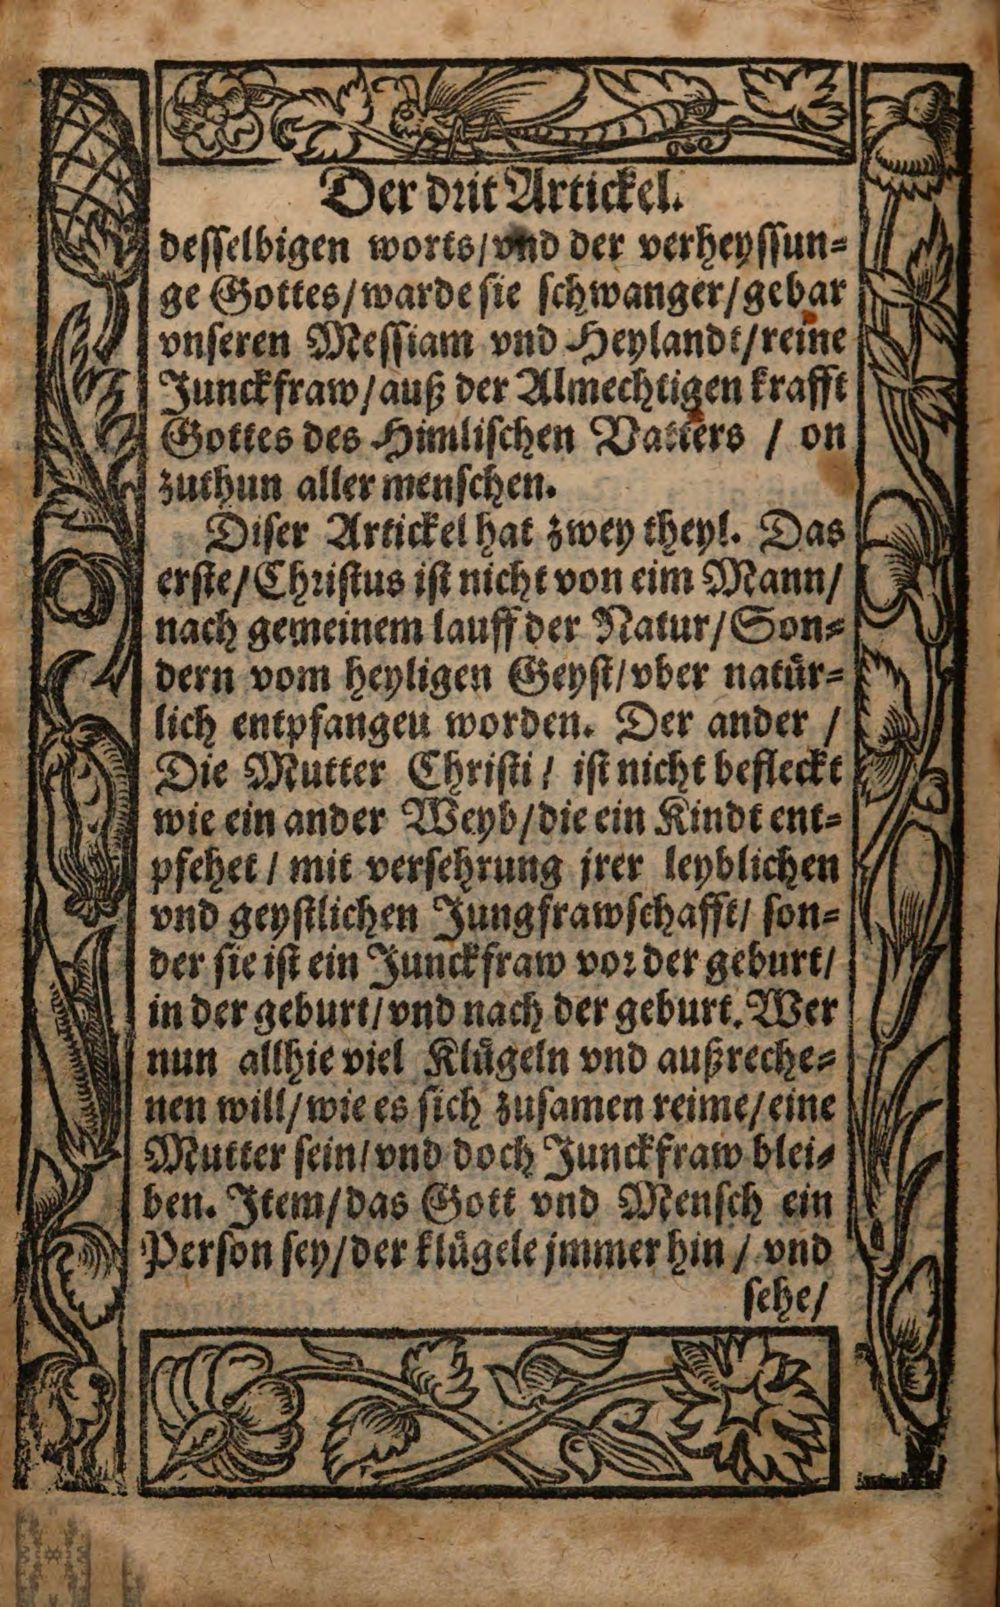 Der drit Artickel.
desselbigen worts/vnd der verheyssun⸗
ge Gottes/warde sie schwanger/gebar
vnseren Messiam vnd Heylandt/reine
Junckfraw/auß der Almechtigen krafft
Gottes des Himlischen Vatters / on
zuthun aller menschen.
Diser Artickel hat zwey theyl. Das
erste/Christus ist nicht von eim Mann/
nach gemeinem lauff der Natur/Son⸗
dern vom heyligen Geyst/vber natuͤr⸗
lich entpfangeu worden. Der ander /
Die Mutter Christi/ ist nicht befleckt
wie ein ander Weyb/die ein Kindt ent⸗
pfehet/ mit versehrung jrer leyblichen
vnd geystlichen Jungfrawschafft/ son⸗
der sie ist ein Junckfraw vor der geburt/
in der geburt/vnd nach der geburt. Wer
nun allhie viel Kluͤgeln vnd außreche⸗
nen will/wie es sich zusamen reime/eine
Mutter sein/vnd doch Junckfraw blei⸗
ben. Item/das Gott vnd Mensch ein
Person sey/der kluͤgele jmmer hin / vnd
sehe/